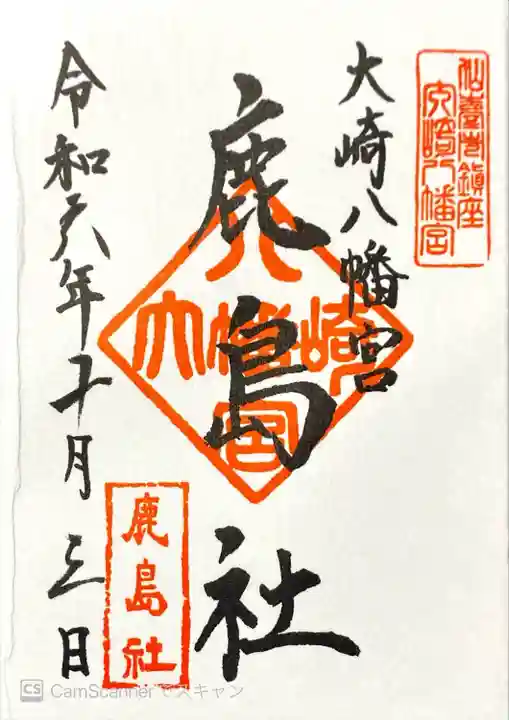 仙臺市鎮座
大崎八幡宮
大崎八幡宮
鹿島社
大崎八幡宮
鹿島社
令和六年十一月三日
CS CamScannerでスキャン